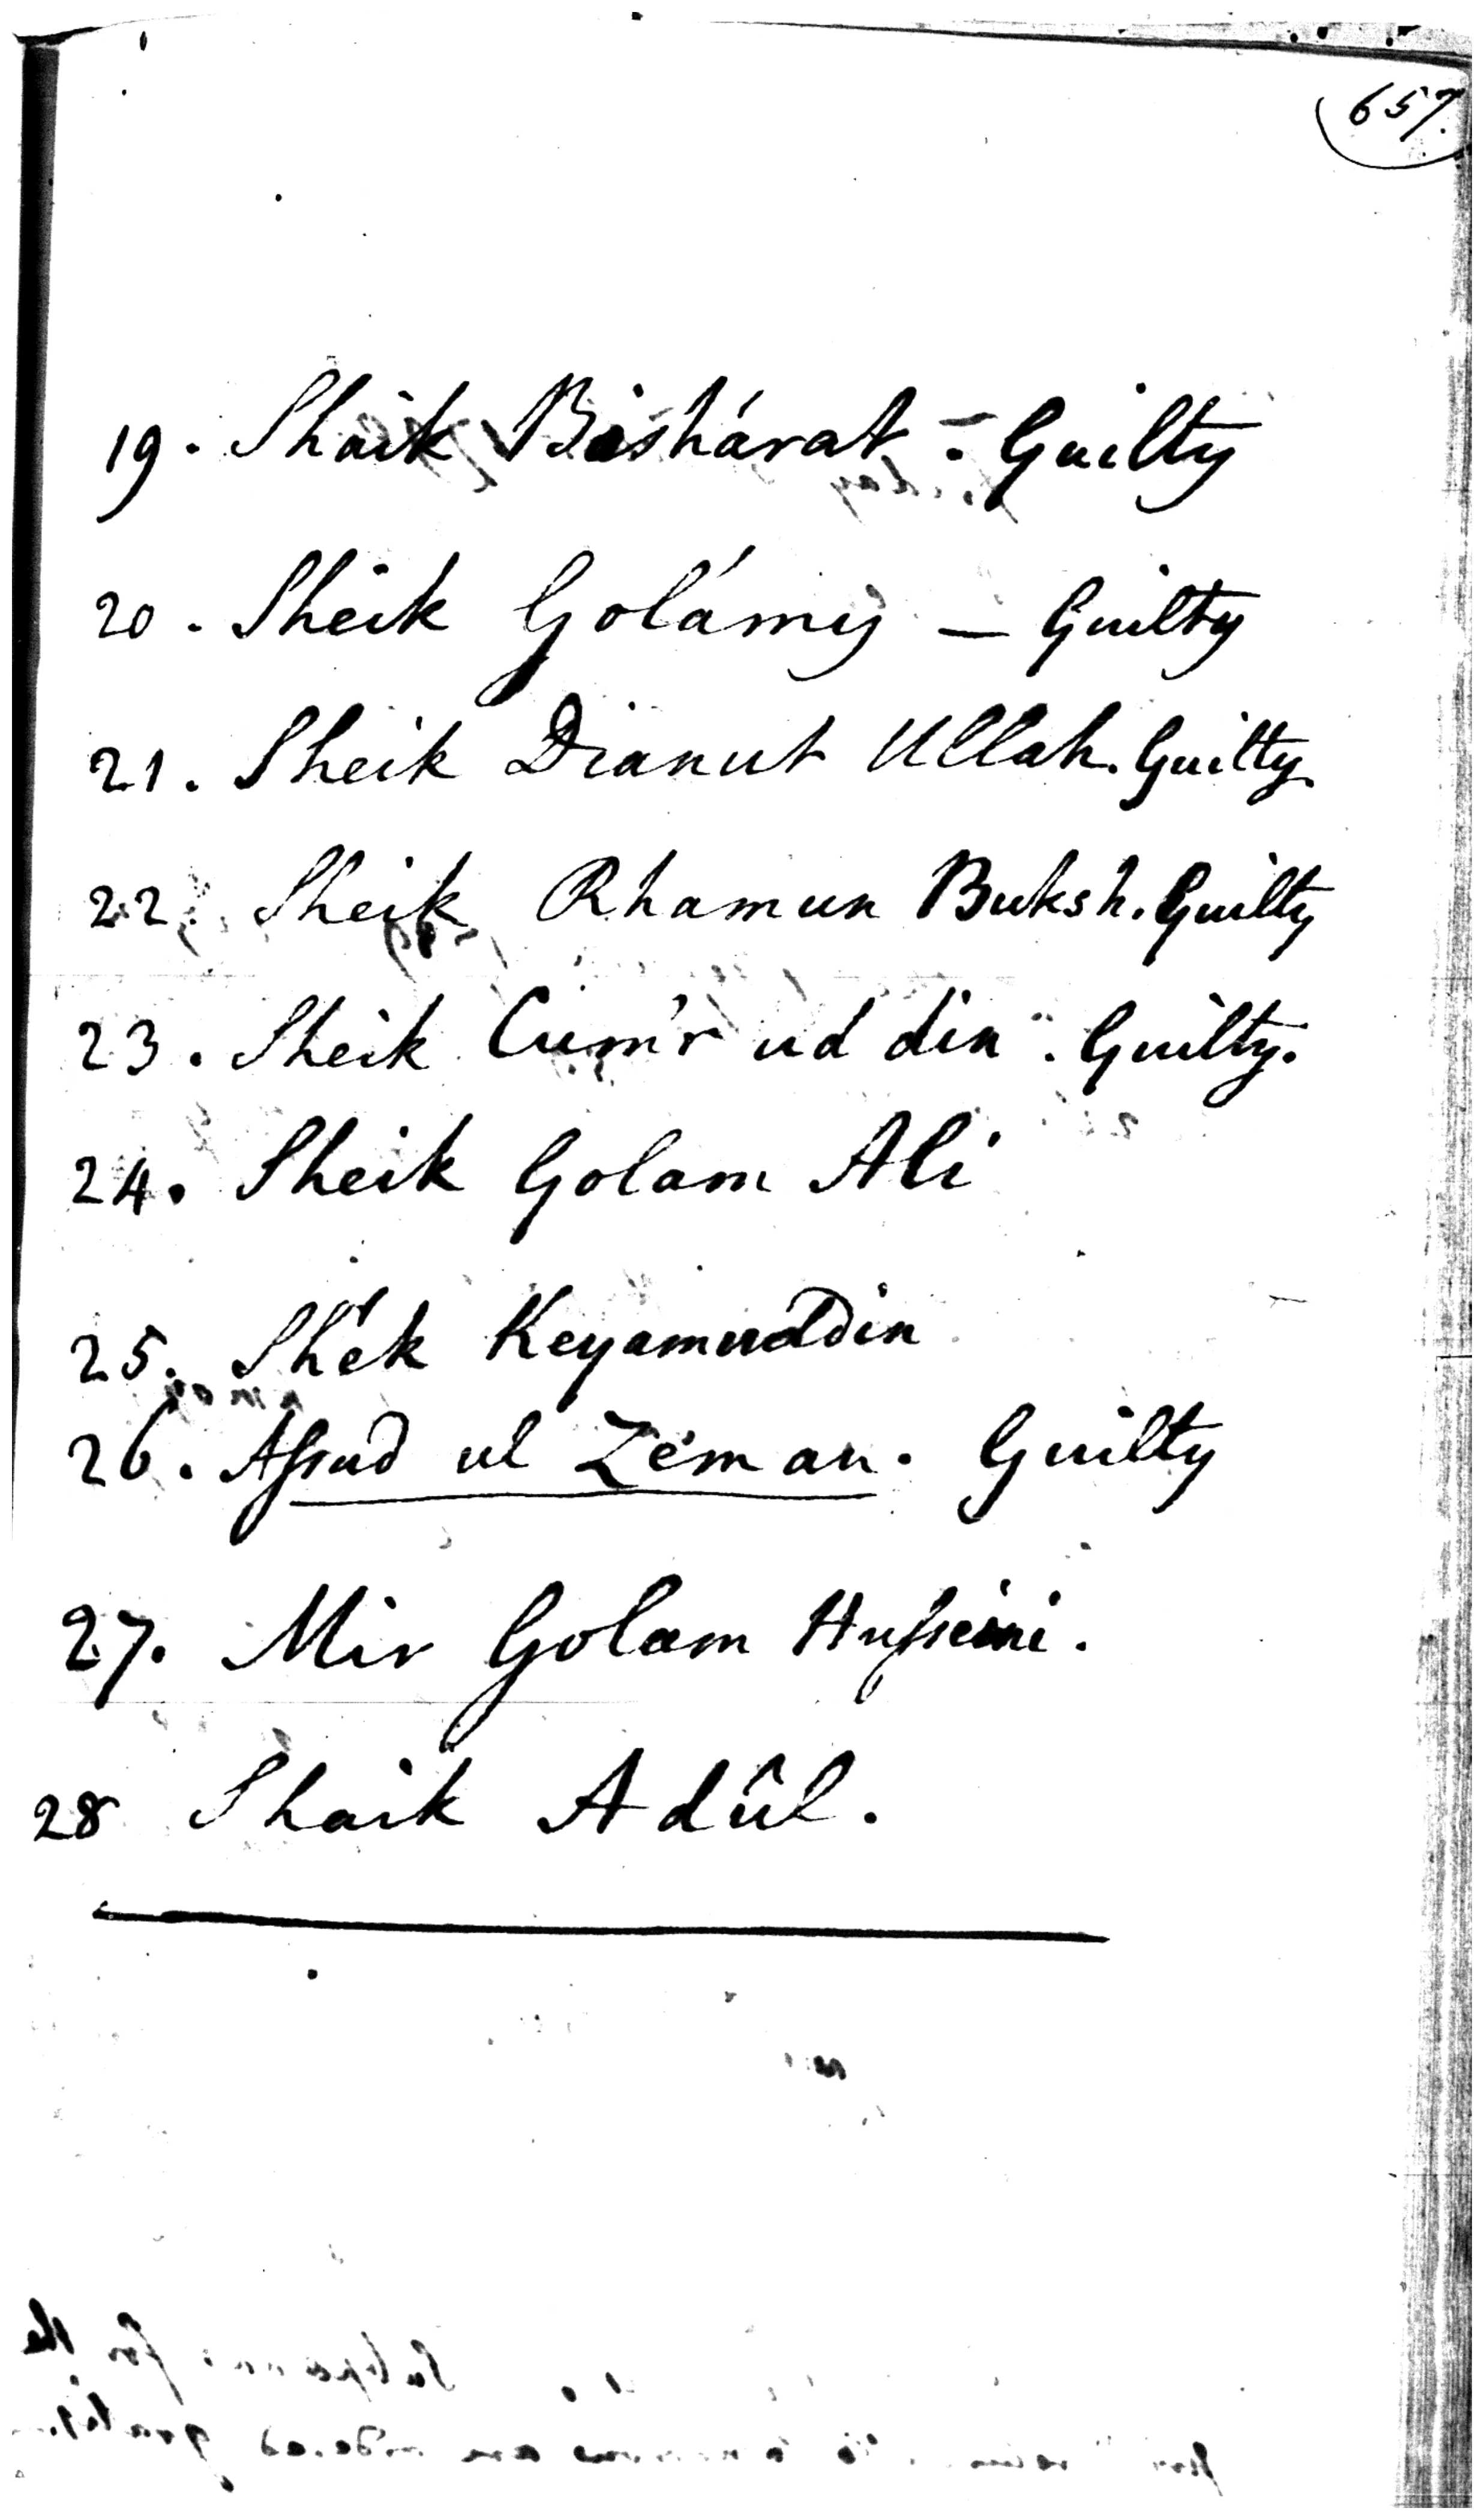 657.
19. Shaik Bishárat - Guilty
20. Sheik Golámy — Guilty
21. Sheik Dianut Ullah. Guilty
22. Sheik Rhamun Buksh. Guilty
23. Sheik Cum'r ud din. Guilty.
24. Sheik Golam Ali
25. Shek Keyamuddin
26. Assud ul Zeman. Guilty
27. Mir Golam Husseini.
28 Shaik Adûl.